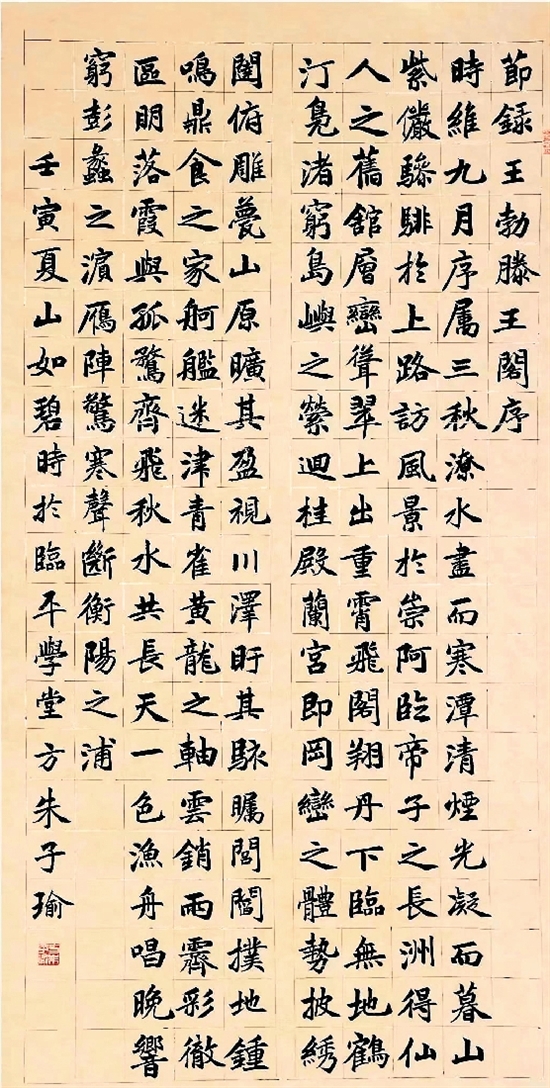 節録王勃滕王閣序
時維九月序属三秋潦水盡而寒潭清煙光凝而暮山
紫儼驂騑於上路訪風景於崇阿臨帝子之長洲得仙
人之舊舘層巒聳翠上出重霄飛閣翔丹下臨無地鶴
汀鳧渚窮島嶼之縈迴桂殿蘭宮即岡巒之體勢披綉
闥俯雕甍山原曠其盈視川澤盱其駭矚閭閻撲地鍾
鳴鼎食之家舸艦迷津青雀黃龍之軸雲銷雨霽彩徹
區明落霞與孤鶩齊飛秋水共長天一色漁舟唱晚響
窮彭蠡之濵鴈陣驚寒聲斷衡陽之浦
壬寅夏山如碧時於臨平學堂方朱子瑜